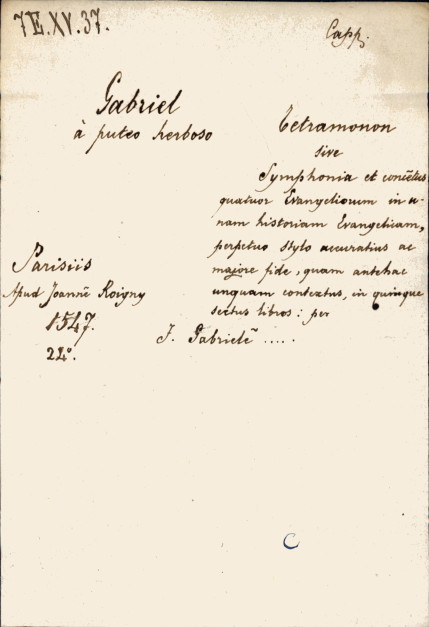 7 E. XV. 37.
Capp.
Gabriel
à puteo herboso
Tetramonon
sive
Symphonia et concẽtus
quatuor Evangeliorum in u-
nam historiam Evangelicam,
perpetuo stylo accuratius ac
majore fide, quam antehac
unquam contextus, in quinque
sectus libros: per
F. Gabrielẽ .....
Parisiis
Apud Joannẽ Roigny
1547.
C